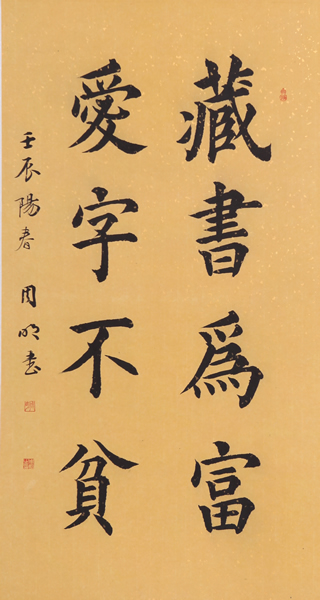 藏書爲富
愛字不貧
壬辰陽春 周明書